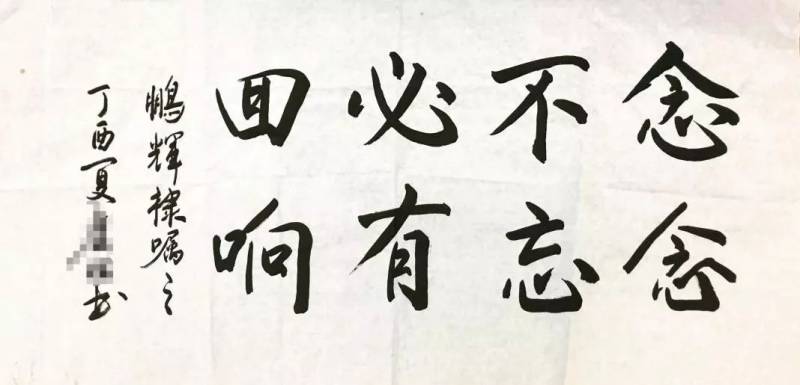 念念
不忘
必有
回响
鹏辉棣嘱之
丁酉夏 书